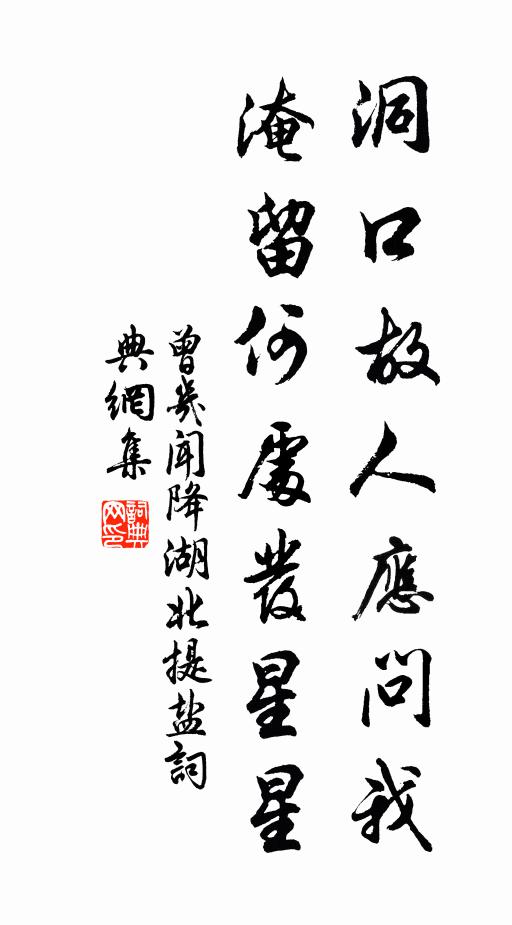 洞口故人應問我
淹留何處發星星
曾幾聞降湖北提盐詞
典網集
詞典
网印